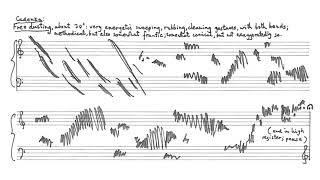 Cadenza:
Free dusting, about 20": very energetic sweeping, rubbing, cleaning gestures, with both hands;
methodical, but also somewhat frantic; somewhat comical, but not exaggeratedly so.
(end in high
register; pause)